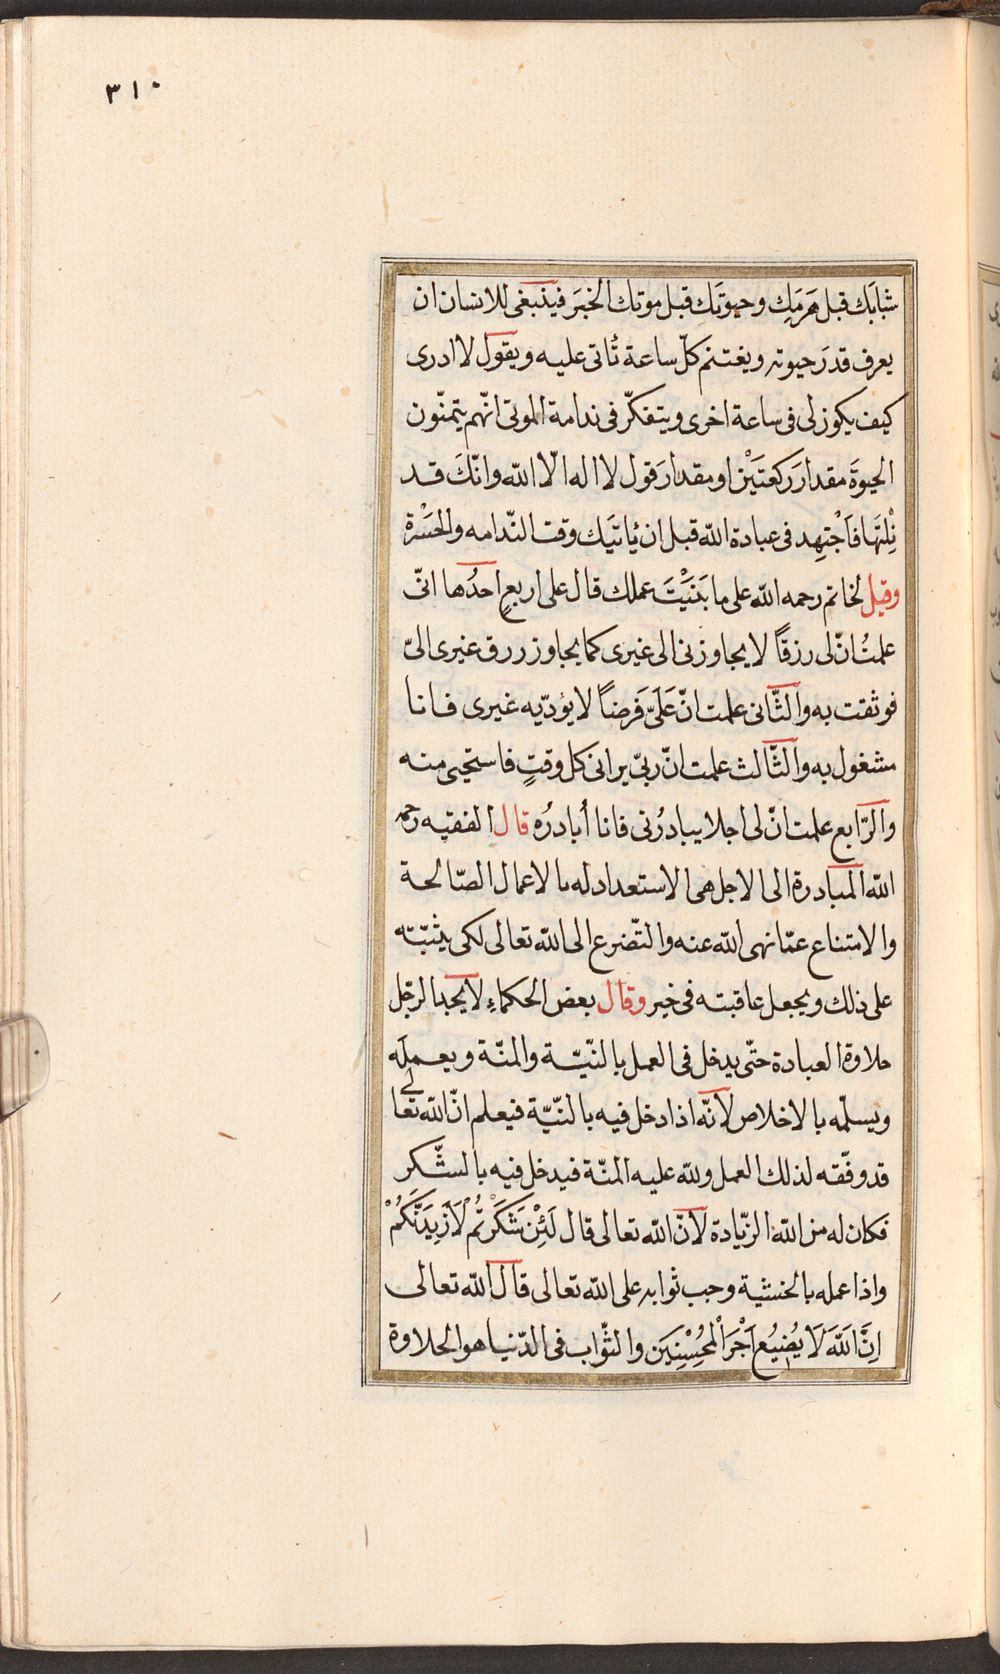 ٣١٠
شبابَك قبل هَرَمِك وحيوتَك قبل موتك الخبَر فينبغى للانسان ان
يعرف قدرَ حيوته ويغتنم كلّ ساعة تأتى عليه ويقول لا ادرى
كيف يكون لى فى ساعة اخرى ويتفكّر فى ندامة الموتى انّهم يتمنّون
الحيوةَ مقدارَ ركعتَيْن او مقدارَ قول لا اله الّا اللّه وانّكَ قد
نِلْتَها فَاجْتهِد فى عبادة اللّه قبل ان يأتيَك وقت النّدامه والحَسْرة
وقيل لخاتم رحمه اللّه على ما بَنَيْتَ عملك قال على اربعٍ احدُها انّى
علمتُ انّ لى رزقاً لا يجاوزنى الى غيرى كما يجاوز رزق غيرى الىّ
فوثقت به والثّانى علمت انّ عَلَىّ فَرضاً لا يؤدّيه غيرى فانا
مشغول به والثّالث علمت انّ ربّى يرانى كل وقتٍ فاستحيى منه
والرّابع علمت انّ لى اجلا يبادرُنى فانا أبادرُه قال الفقيه رحمه
اللّه المبادرة الى الاجل هى الاستعداد له بالاعمال الصّالحة
والامتناع عمّا نهى اللّه عنه والتّضرع الى اللّه تعالى لكى يثبّته
على ذلك ويجعل عاقبته فى خير وقال بعض الحكماءِ لا يجد الرجل
حلاوة العبادة حتّى يدخل فى العمل بالنّيّة والمنّة ويعمله
ويسلّمه بالاخلاص لانّه اذا دخل فيه بالنّيّة فيعلم انّ اللّه تعالى
قد وفّقه لذلك العمل وللّه عليه المنّة فيدخل فيه بالشّكر
فكان له من اللّه الزّيادة لانّ اللّه تعالى قال لَئِنْ شَكَرْتُمْ لَاَزيدَنَّكُمْ
واذا عمله بالخشية وجب ثوابه على اللّه تعالى قال اللّه تعالى
اِنَّ اللّهَ لَا يُضيعُ اَجْرَ المُحْسِنِينَ والثّواب فى الدّنيا هو الحلاوة